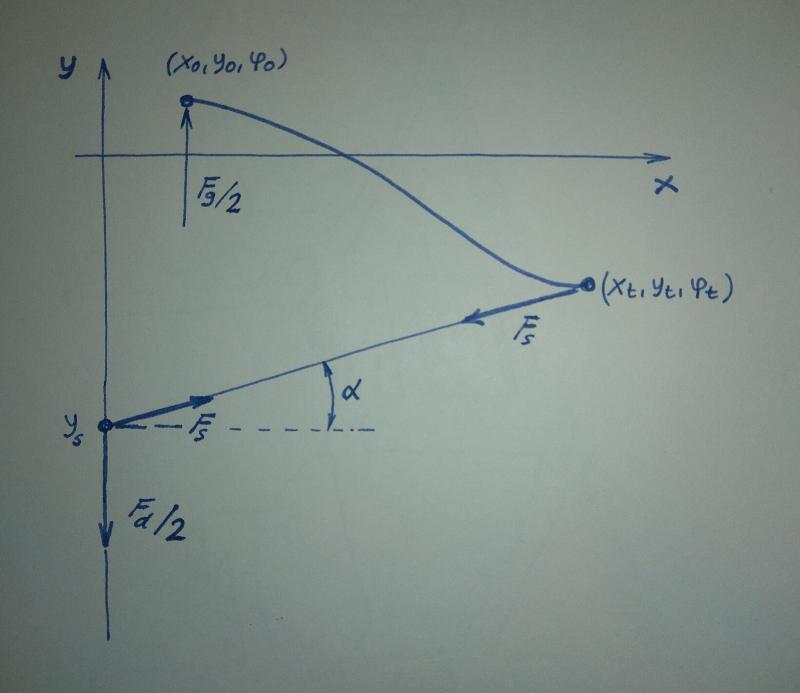 y (x₀, y₀, φ₀)
Fg/2
x
(xt, yt, φt)
Fs
α
ys Fs
Fd/2